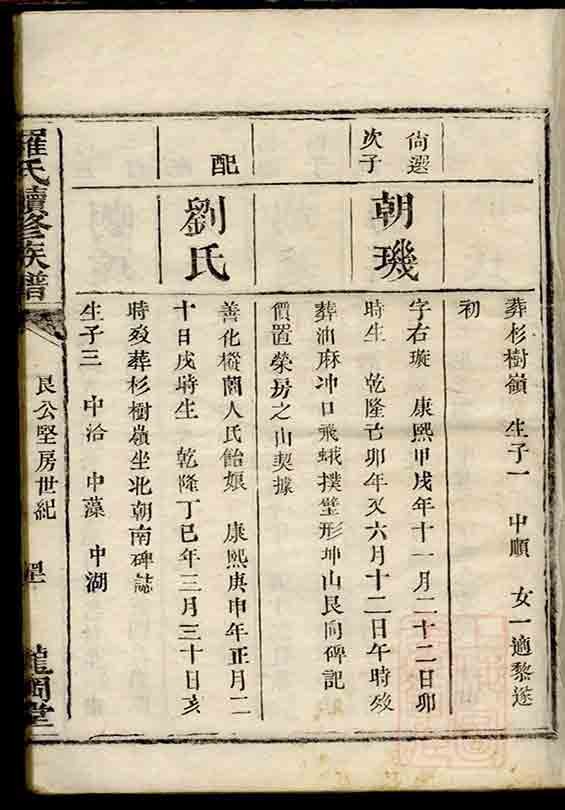 葬杉樹嶺 生子一 中順 女一適黎遂
初
尙選
次子
朝璣
字右璇 康熙甲戌年十一月二十二日卯
時生 乾隆己卯年又六月十二日午時歿
葬油麻冲口飛蛾撲壁形坤山艮向碑記
價置榮房之山契據
配
劉氏
善化樅蘭人氏飴娘 康熙庚申年正月二
十日戌時生 乾隆丁巳年三月三十日亥
時歿葬杉樹嶺坐北朝南碑誌
生子三 中洽 中藻 中湖
羅氏續修族譜
艮公堅房世紀